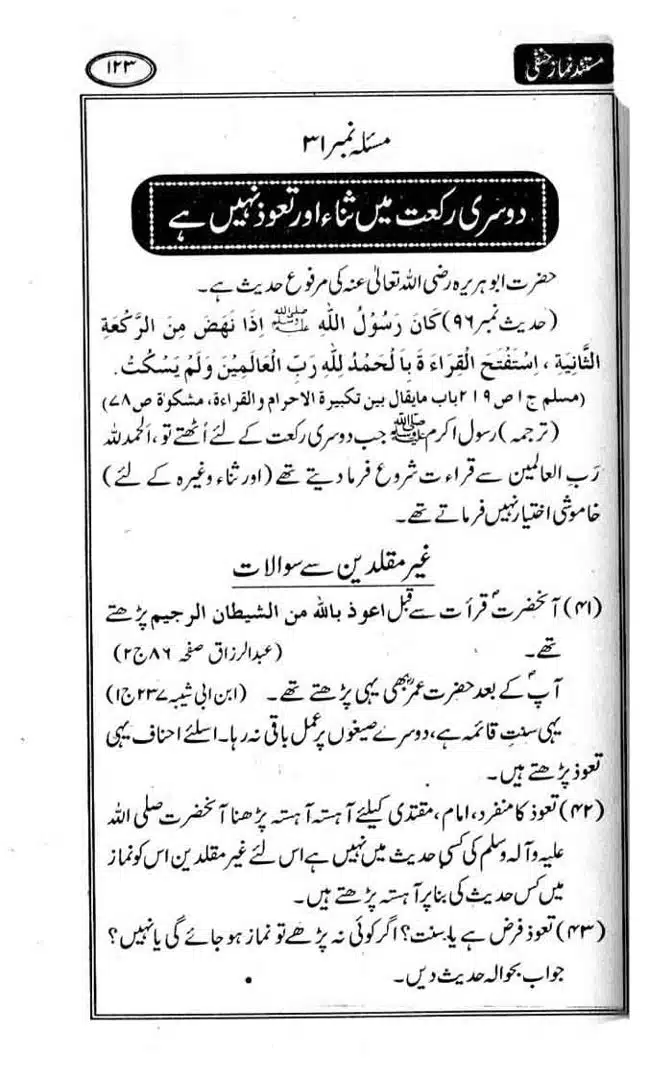 مستند نماز حنفی
۱۲۳
مسئلہ نمبر ۳۱
دوسری رکعت میں ثناء اور تعوذ نہیں ہے
حضرت ابوہریرہ رضی اللہ تعالیٰ عنہ کی مرفوع حدیث ہے۔
(حدیث نمبر ۹۶) كَانَ رَسُوْلُ اللهِ ﷺ اِذَا نَهَضَ مِنَ الرَّكْعَةِ
الثَّانِيَةِ ، اِسْتَفْتَحَ الْقِرَاءَةَ بِالْحَمْدُ لِلّٰهِ رَبِّ الْعَالَمِيْنَ وَلَمْ يَسْكُتْ.
(مسلم ج ۱ ص ۲۱۹ باب مايقال بين تكبيرة الاحرام والقراءة، مشكوٰة ص ۷۸)
(ترجمہ) رسول اکرم ﷺ جب دوسری رکعت کے لئے اُٹھتے تو ، الحمد للہ
رَبِ العالمین سے قراءت شروع فرما دیتے تھے (اور ثناء وغیرہ کے لئے)
خاموشی اختیار نہیں فرماتے تھے۔
غیر مقلدین سے سوالات
(۴۱) آنحضرتؐ قرأت سے قبل اعوذ بالله من الشيطان الرجيم پڑھتے
تھے۔ (عبدالرزاق صفحہ ۸۶ ج ۲)
آپؐ کے بعد حضرت عمرؓ بھی یہی پڑھتے تھے۔ (ابن ابی شیبہ ۲۳۷ ج ۱)
یہی سنتِ قائمہ ہے، دوسرے صیغوں پر عمل باقی نہ رہا۔ اسلئے احناف یہی
تعوذ پڑھتے ہیں۔
(۴۲) تعوذ کا منفرد، امام، مقتدی کیلئے آہستہ آہستہ پڑھنا آنحضرت صلی اللہ
علیہ وآلہ وسلم کی کسی حدیث میں نہیں ہے اس لئے غیر مقلدین اس کو نماز
میں کس حدیث کی بنا پر آہستہ پڑھتے ہیں۔
(۴۳) تعوذ فرض ہے یا سنت؟ اگر کوئی نہ پڑھے تو نماز ہو جائے گی یا نہیں؟
جواب بحوالہ حدیث دیں۔